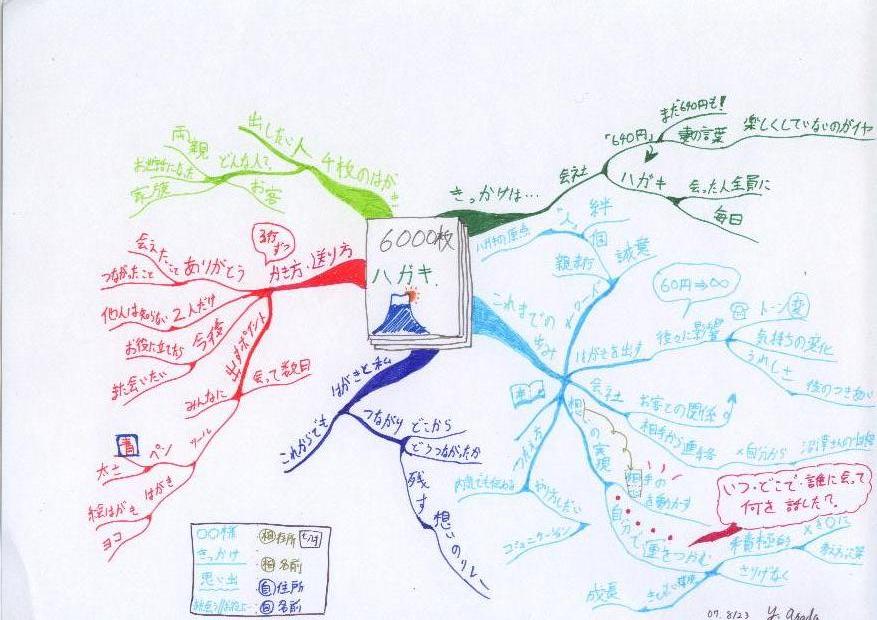 6000枚
ハガキ.
きっかけは…
会社
「640円」
まだ640円も!
妻の言葉
楽しくしていないのがイヤ
ハガキ
会った人全員に
毎日
これまでの
歩み
キーワード
絆
個
誠実
ハガキの原点
親孝行
はがきを出す
60円⇒∞
後々に影響
トーン変
気持ちの変化
うれしさ
後のつきあい
会社
お客との関係
相手から連絡
自分から
想いの実現
相手の
を動かす
自分で
運をつかむ
積極的
さりげなく
成長
いつ・どこで・誰に会って
何を話したか?
本
伝え方
やりとりしたい
コミュニケーション
はがきと私
これからでも
つながり
どこから
どうつながったか
残す
想いのリレー
かき方、送り方
3行ずつ
ありがとう
会えたこと
つながったこと
2人だけ
他人は知らない
今後
お役に立てたら
また会いたい
出すポイント
会って数日
みんなに
ツール
ペン
青
太さ
はがき
絵はがき
ヨコ
4枚のはがき
出しない人
どんな人?
両親
お世話になった
家族
お客
○○様
きっかけ
思い出
相住所
相名前
自住所
自名前
07. 8/23